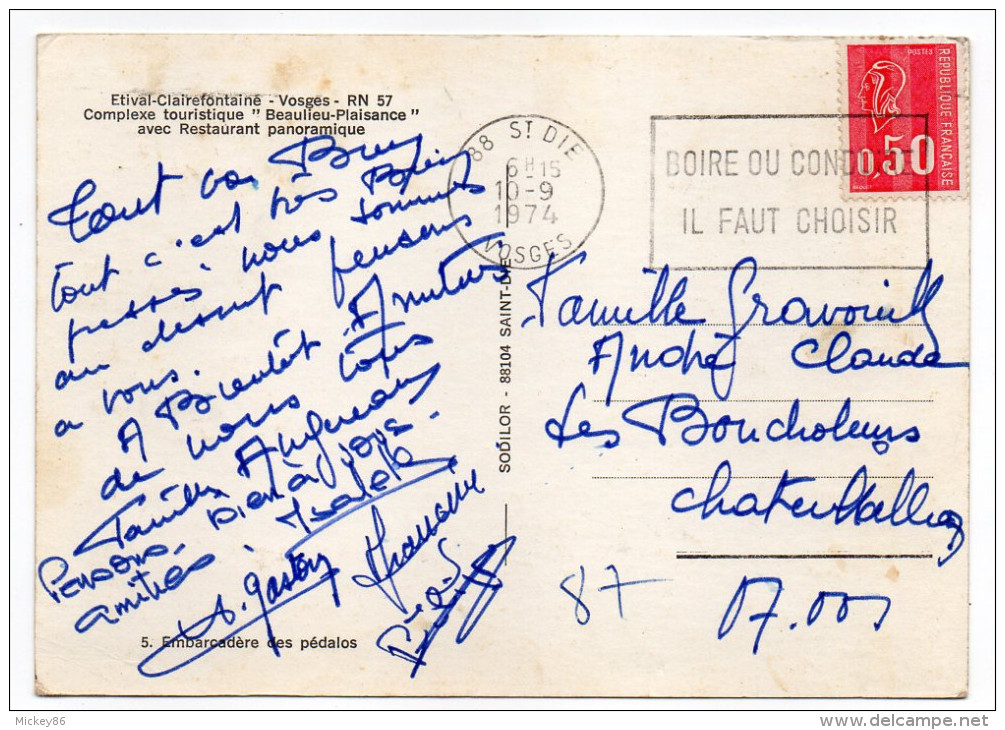 Etival-Clairefontaine - Vosges - RN 57
Complexe touristique " Beaulieu-Plaisance "
avec Restaurant panoramique
Tout va Bien
tout c'est très Bien
passés nous sommes
au dessert pensons
a vous.
A Bientôt Amitiés
de nous tous
Famille
Pensons. Bientôt
amitiés
A. Gaston
5. Embarcadère des pédalos
SODILOR - 88104 SAINT-DIE
88 ST DIE
6H15
10-9
1974
VOSGES
BOIRE OU CONDUIRE
IL FAUT CHOISIR
POSTES
REPUBLIQUE FRANÇAISE
0,50
Famille
André Claude
Les
87
Mickey86
www.delcampe.net